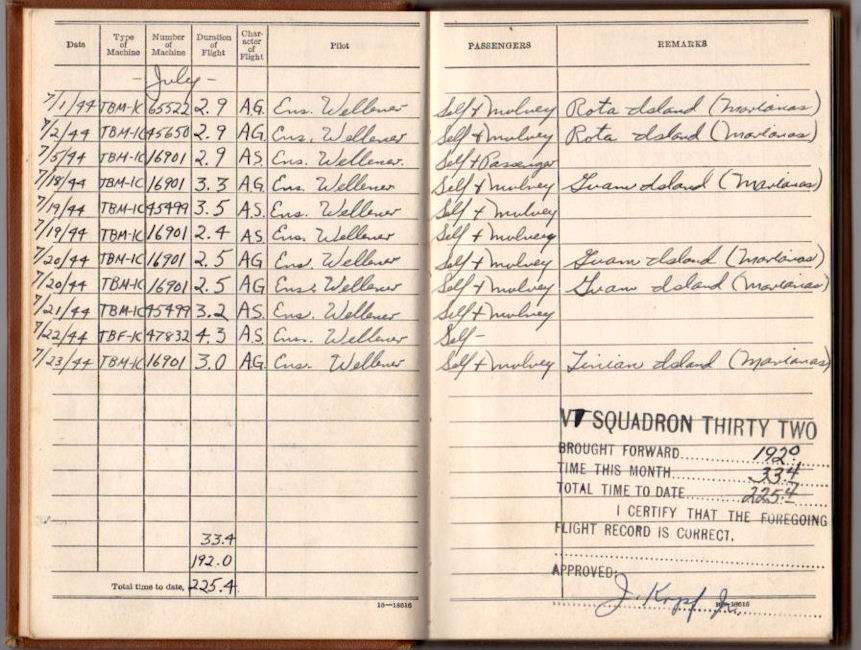 Date Type of Machine Number of Machine Duration of Flight Character of Flight Pilot PASSENGERS REMARKS
- July -
7/1/44 TBM-1C 65522 2.9 A.G. Ens. Wellener Self + Mulvey Rota Island (Marianas)
7/2/44 TBM-1C 45650 2.9 AG. Ens. Wellener Self + Mulvey Rota Island (Marianas)
7/5/44 TBM-1C 16901 2.9 A.S. Ens. Wellener. Self + Passenger
7/18/44 TBM-1C 16901 3.3 AG. Ens. Wellener Self + Mulvey Guam Island (Marianas)
7/19/44 TBM-1C 45499 3.5 A.S. Ens. Wellener Self + Mulvey
7/19/44 TBM-1C 16901 2.4 A.S. Ens. Wellener Self + Mulvey
7/20/44 TBM-1C 16901 2.5 AG Ens. Wellener Self + Mulvey Guam Island (Marianas)
7/20/44 TBM-1C 16901 2.5 AG Ens. Wellener Self + Mulvey Guam Island (Marianas)
7/21/44 TBM-1C 45499 3.2 A.S. Ens. Wellener Self + Mulvey
7/22/44 TBF-1C 47832 4.3 A.S. Ens. Wellener Self -
7/23/44 TBM-1C 16901 3.0 AG. Ens. Wellener Self + Mulvey Tinian Island (Marianas)
33.4
192.0
Total time to date, 225.4
16—18616
VT SQUADRON THIRTY TWO
BROUGHT FORWARD 192.0
TIME THIS MONTH 33.4
TOTAL TIME TO DATE 225.4
I CERTIFY THAT THE FOREGOING
FLIGHT RECORD IS CORRECT.
APPROVED:
J. Kopf Jr.